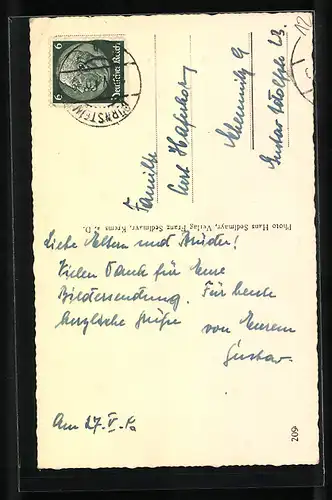 6 6
Deutsches Reich
Familie
Curt
Chemnitz 9
Gustav
12
Photo Hans Sedlmayr, Verlag Franz Sedlmayr, Krems a. D.
Liebe Eltern und Bruder!
Vielen Dank für Eure
Bildersendung. Für heute
herzliche Grüße
von Eurem
Gustav.
Am 27. V.
209